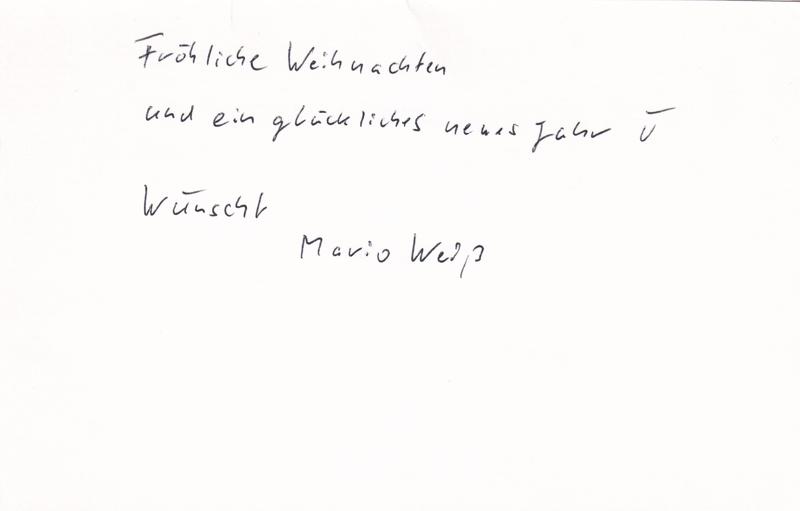 Fröhliche Weihnachten
und ein glückliches neues Jahr
Wünscht
Mario Weiß